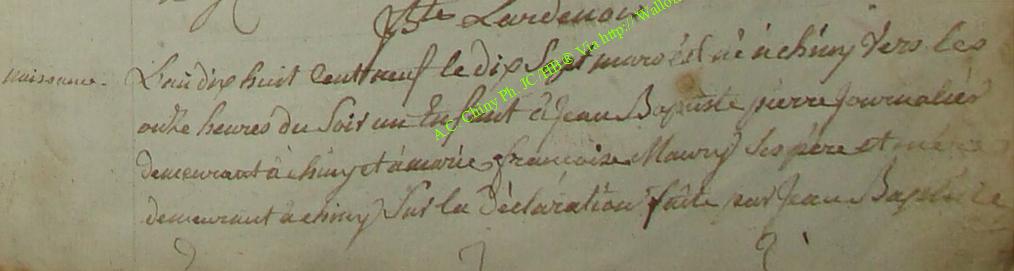 Bte Lardenoi
Naissance. L'an dix huit Cent neuf le dix Sept mars est né à chiny vers les
onze heures du Soir un Enfant à Jean Baptiste pierre Journalier
demeurant à chiny et à marie françoise Maury Ses père et mère
demeurant à chiny Sur la Déclaration faite par Jean Baptiste
A.C. Chiny Ph. JC /HB® Via http://Wallo